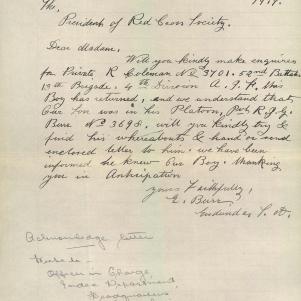 The, 1919.
President of Red Cross Society.
Dear Madame,
Will you kindly make enquires
for Private R Coleman No 3701. 52nd Battal.
13th Brigade, 4th Division A. I. F. this
Boy has returned, and we understand that
Our Son was in his Platoon, Pvt R. G.
Burr No 3696, will you kindly try &
find his whereabouts & hand or send
enclosed letter to him. we have been
informed he knew Our Boy. thanking
you in Anticipation
yours Faithfully,
E. Burr.
S. A.
Acknowledge letter
Officer in Charge,
Department,
Headquarters